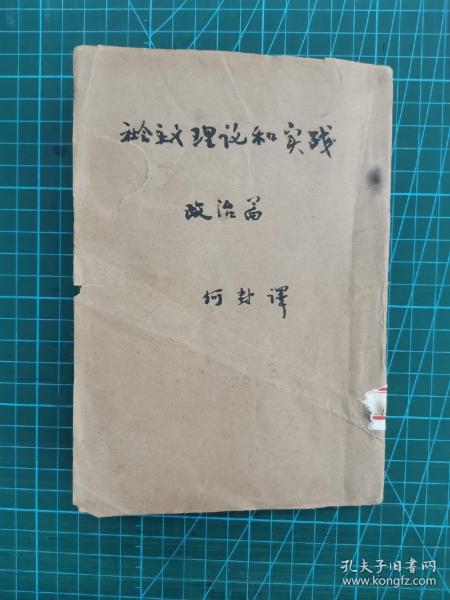 社会主义理论和实践
政治篇
何封译
孔夫子旧书网
www.kongfz.com